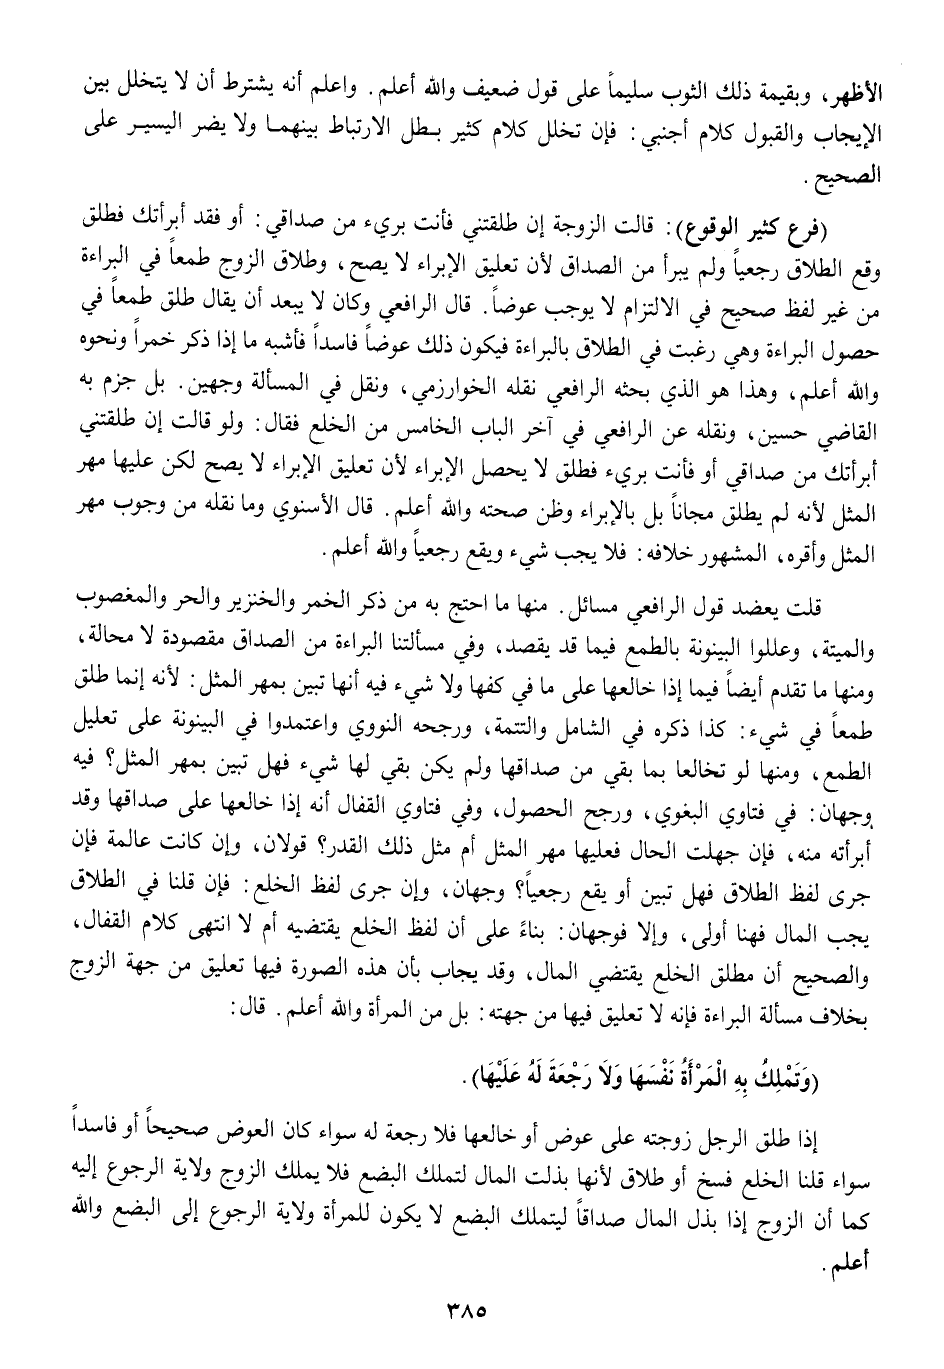 الأظهر، وبقيمة ذلك الثوب سليماً على قول ضعيف والله أعلم. واعلم أنه يشترط أن لا يتخلل بين
الإيجاب والقبول كلام أجنبي: فإن تخلل كلام كثير بطل الارتباط بينهما ولا يضر اليسير على
الصحيح.
(فرع كثير الوقوع): قالت الزوجة إن طلقتني فأنت بريء من صداقي: أو فقد أبرأتك فطلق
وقع الطلاق رجعياً ولم يبرأ من الصداق لأن تعليق الإبراء لا يصح، وطلاق الزوج طمعاً في البراءة
من غير لفظ صحيح في الالتزام لا يوجب عوضاً. قال الرافعي وكان لا يبعد أن يقال طلق طمعاً في
حصول البراءة وهي رغبت في الطلاق بالبراءة فيكون ذلك عوضاً فاسداً فأشبه ما إذا ذكر خمراً ونحوه
والله أعلم، وهذا هو الذي بحثه الرافعي نقله الخوارزمي، ونقل في المسألة وجهين. بل جزم به
القاضي حسين، ونقله عن الرافعي في آخر الباب الخامس من الخلع فقال: ولو قالت إن طلقتني
أبرأتك من صداقي أو فأنت بريء فطلق لا يحصل الإبراء لأن تعليق الإبراء لا يصح لكن عليها مهر
المثل لأنه لم يطلق مجاناً بل بالإبراء وظن صحته والله أعلم. قال الأسنوي وما نقله من وجوب مهر
المثل وأقره، المشهور خلافه: فلا يجب شيء ويقع رجعياً والله أعلم.
قلت يعضد قول الرافعي مسائل. منها ما احتج به من ذكر الخمر والخنزير والحر والمغصوب
والميتة، وعللوا البينونة بالطمع فيما قد يقصد، وفي مسألتنا البراءة من الصداق مقصودة لا محالة،
ومنها ما تقدم أيضاً فيما إذا خالعها على ما في كفها ولا شيء فيه أنها تبين بمهر المثل: لأنه إنما طلق
طمعاً في شيء: كذا ذكره في الشامل والتتمة، ورجحه النووي واعتمدوا في البينونة على تعليل
الطمع، ومنها لو تخالعا بما بقي من صداقها ولم يكن بقي لها شيء فهل تبين بمهر المثل؟ فيه
وجهان: في فتاوي البغوي، ورجح الحصول، وفي فتاوي القفال أنه إذا خالعها على صداقها وقد
أبرأته منه، فإن جهلت الحال فعليها مهر المثل أم مثل ذلك القدر؟ قولان، وإن كانت عالمة فإن
جرى لفظ الطلاق فهل تبين أو يقع رجعياً؟ وجهان، وإن جرى لفظ الخلع: فإن قلنا في الطلاق
يجب المال فهنا أولى، وإلا فوجهان: بناءً على أن لفظ الخلع يقتضيه أم لا انتهى كلام القفال،
والصحيح أن مطلق الخلع يقتضي المال، وقد يجاب بأن هذه الصورة فيها تعليق من جهة الزوج
بخلاف مسألة البراءة فإنه لا تعليق فيها من جهته: بل من المرأة والله أعلم. قال:
(وَتَمْلِكُ بِهِ الْمَرْأَةُ نَفْسَهَا وَلَا رَجْعَةَ لَهُ عَلَيْهَا).
إذا طلق الرجل زوجته على عوض أو خالعها فلا رجعة له سواء كان العوض صحيحاً أو فاسداً
سواء قلنا الخلع فسخ أو طلاق لأنها بذلت المال لتملك البضع فلا يملك الزوج ولاية الرجوع إليه
كما أن الزوج إذا بذل المال صداقاً ليتملك البضع لا يكون للمرأة ولاية الرجوع إلى البضع والله
أعلم.
٣٨٥